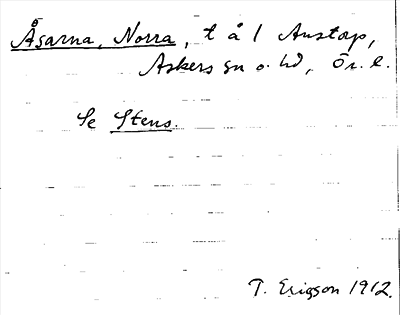 Åsarna, Norra, t å 1 Anstorp,
Askers sn o. hd, Ör. l.
Se Stens.
T. Erigson 1912.